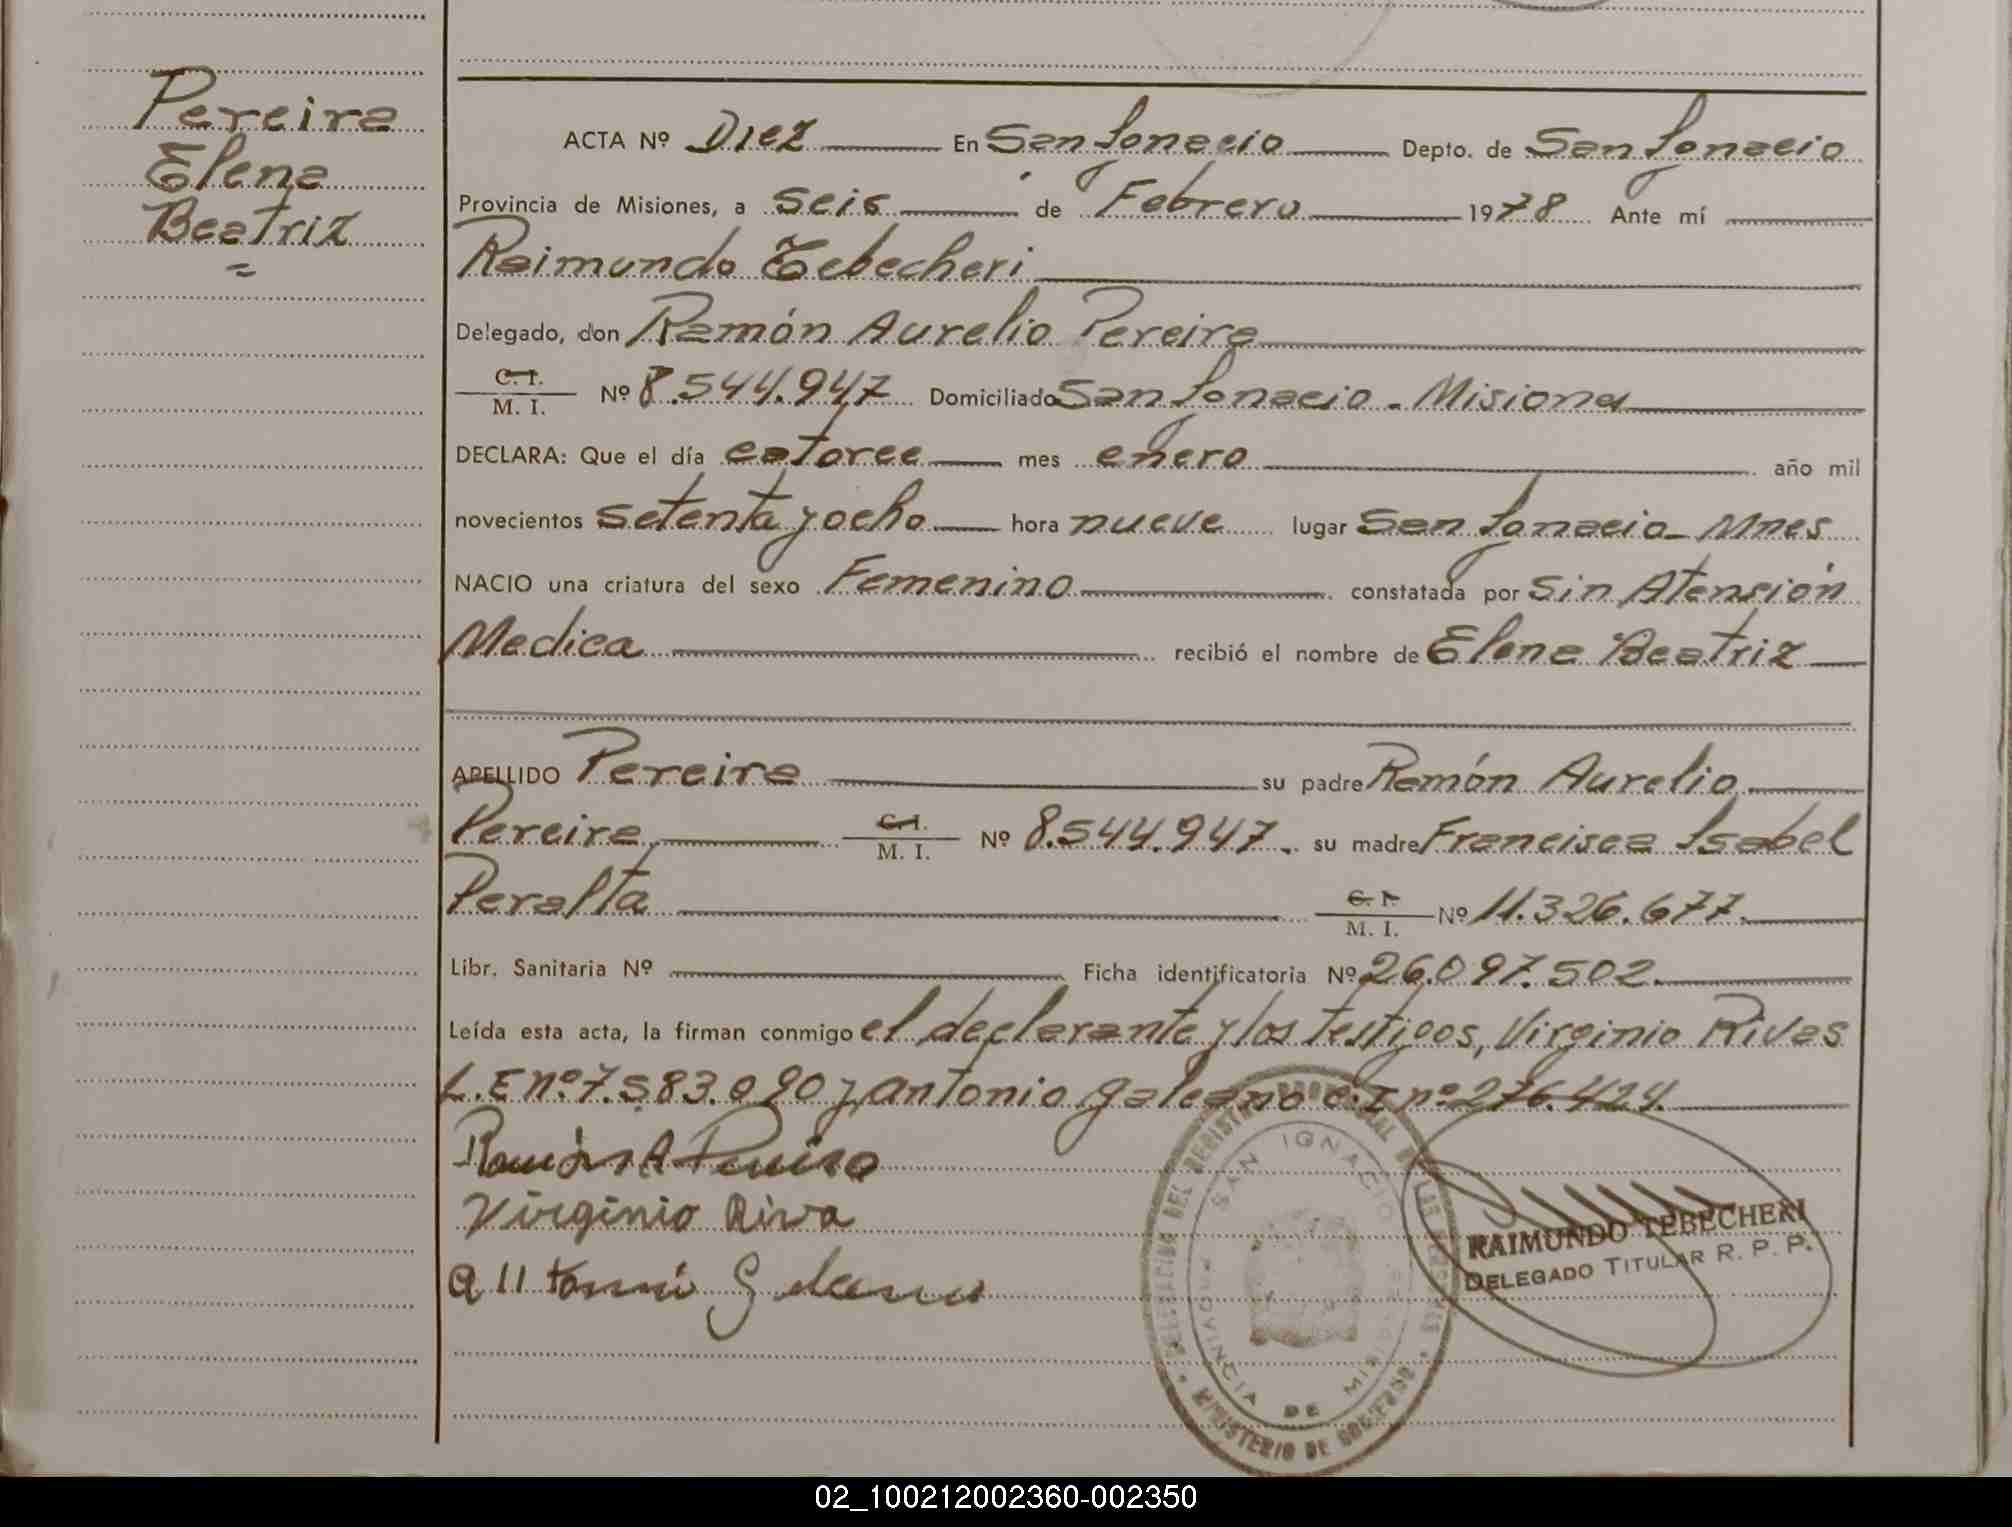 Pereira
Elena
Beatriz
ACTA Nº Diez En San Ignacio Depto. de San Ignacio
Provincia de Misiones, a seis de Febrero 1978 Ante mí
Raimundo Tebecheri
Delegado, don Ramón Aurelio Pereira
C. I.
M. I. Nº 8.544.947 Domiciliado San Ignacio - Misiones
DECLARA: Que el día catorce mes enero año mil
novecientos setenta y ocho hora nueve lugar San Ignacio - Mnes
NACIO una criatura del sexo Femenino constatada por Sin Atensión
Medica recibió el nombre de Elena Beatriz
APELLIDO Pereira su padre Ramón Aurelio
Pereira C. I. M. I. Nº 8.544.947 su madre Francisca Isabel
Peralta C. I. M. I. Nº 11.326.677
Libr. Sanitaria Nº Ficha identificatoria Nº 26.097.502
Leída esta acta, la firman conmigo el declarante y los testigos, Virginio Rivas
L.E nº 7.583.090 y Antonio Galeano C.I nº 276.424.
Ramón A Pereira
Virginio Riva
SAN IGNACIO
PROVINCIA DE MISIONES
MINISTERIO DE GOBIERNO
RAIMUNDO TEBECHERI
DELEGADO TITULAR R. P. P.
02_100212002360-002350